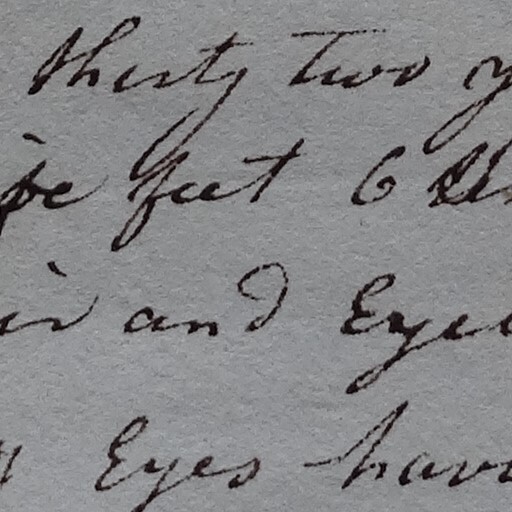 thirty two y
feet 6
and Eye
Eyes hav